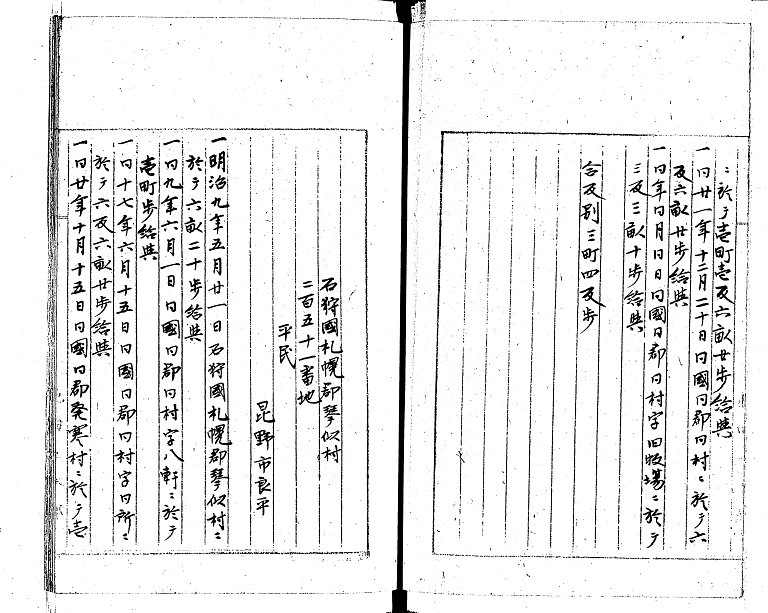 ニ於テ壱町壱反六畝廿歩給與
一同廿一年十二月二十日同國同郡同村ニ於テ六
反六畝廿歩給與
一同年同月同日同國同郡同村字旧牧場ニ於テ
三反三畝十歩給與
合反別三町四反歩
石狩國札幌郡琴似村
二百五十一番地
平民
昆野市良平
一明治九年五月廿一日石狩國札幌郡琴似村ニ
於テ六畝二十歩給與
一同九年六月一日同國同郡同村字八軒ニ於テ
壱町歩給與
一同十七年六月十五日同國同郡同村字同所ニ
於テ六反六畝廿歩給與
一同廿年十月十五日同國同郡発寒村ニ於テ壱